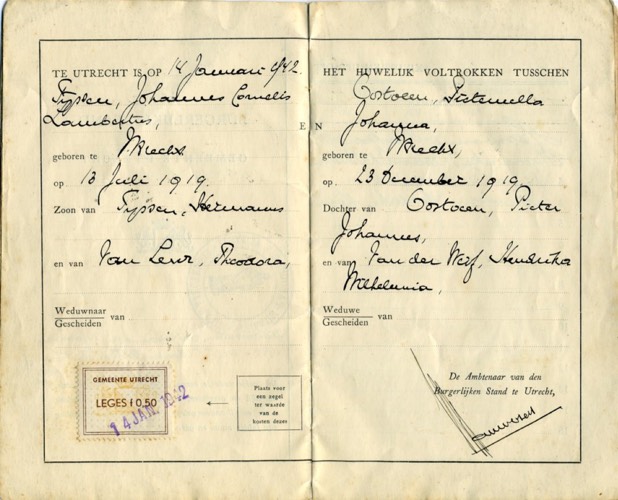 TE UTRECHT IS OP 14 Januari 1942.
Tijssen, Johannes Cornelis
Lambertus,
geboren te Utrecht
op 13 Juli 1919.
Zoon van Tijssen, Hermanus
en van Van Leur, Theodora,
Weduwnaar
Gescheiden van
GEMEENTE UTRECHT
LEGES f 0,50
14 JAN. 1942
Plaats voor
een zegel
ter waarde
van de
kosten dezes
EN
HET HUWELIJK VOLTROKKEN TUSSCHEN
Oostveen, Pieternella
Johanna,
geboren te Utrecht,
op 23 December 1919.
Dochter van Oostveen, Pieter
Johannes,
en van Van der Werf, Hendrika
Wilhelmina,
Weduwe
Gescheiden van
De Ambtenaar van den
Burgerlijken Stand te Utrecht,